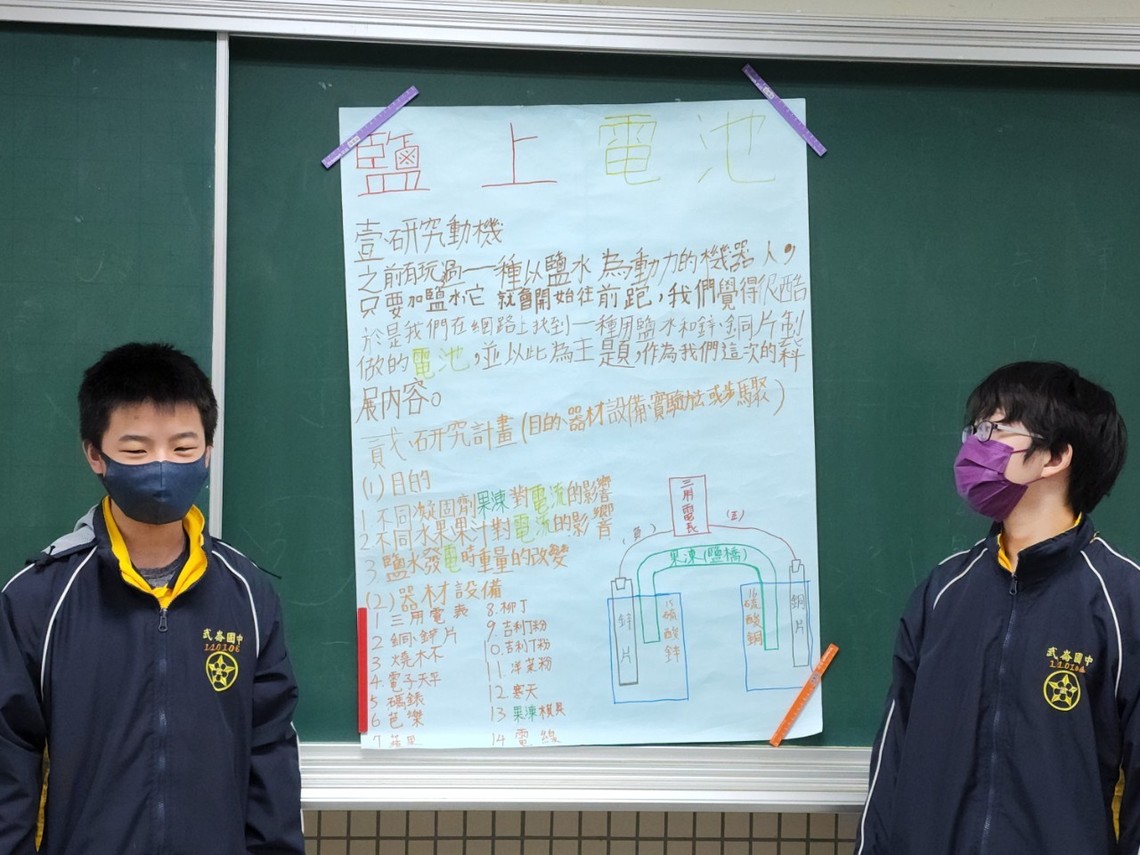 鹽上電池
壹、研究動機
之前有玩過一種以鹽水為動力的機器人，
只要加鹽水它就會開始往前跑，我們覺得很酷
於是我們在網路上找到一種用鹽水和鋅、銅片製
做的電池，並以此為主題，作為我們這次的科
展內容。
貳、研究計畫(目的、器材設備實驗方法或步驟)
(1)目的
1 不同凝固劑果凍對電流的影響
2 不同水果果汁對電流的影響
3 鹽水發電時重量的改變
(2)器材設備
1 三用電表
2 銅、鋅片
3 燒杯
4. 電子天平
5 碼錶
6 芭樂
7 蘋果
8. 柳丁
9. 吉利丁粉
10. 吉利丁粉
11. 洋菜粉
12. 寒天
13 果凍模具
14. 電線
三用電表
(負)
(正)
果凍(鹽橋)
鋅片
硫酸鋅
硫酸銅
銅片
武崙國中
110106
武崙國中